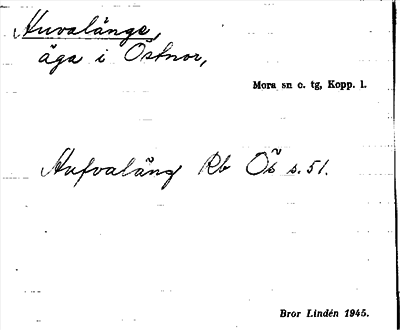 Huvalänge,
äga i Östnor,
Mora sn o. tg, Kopp. l.
Hufvaläng Rb Ös s. 51.
Bror Lindén 1945.